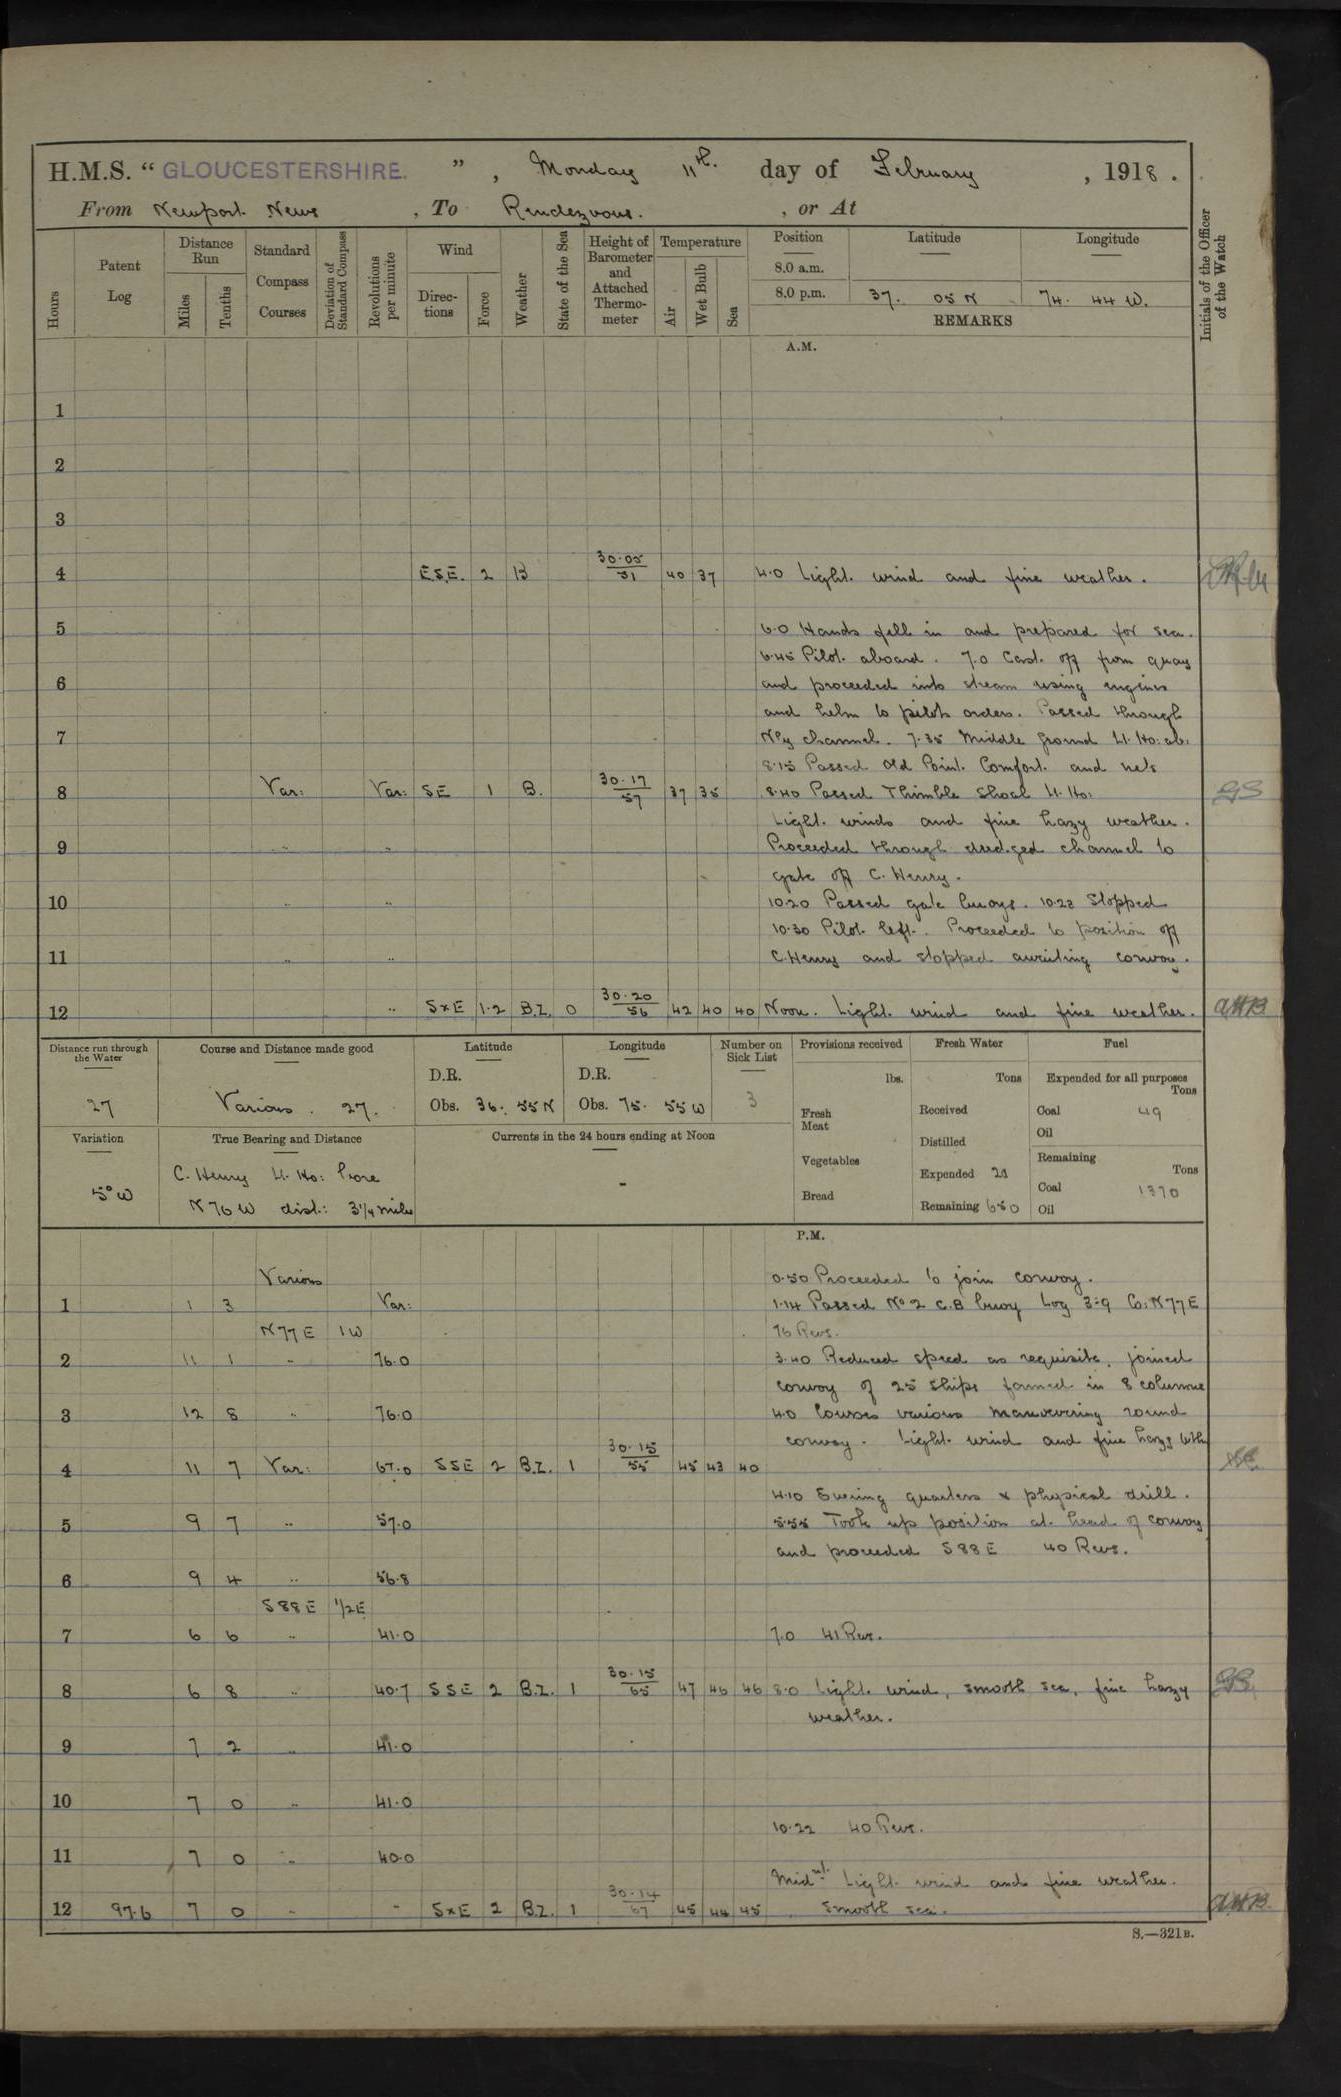 H.M.S. “ GLOUCESTERSHIRE. ” , Monday 11th. day of February , 1918 .
From Newport News , To Rendezvous. , or At
Hours
Patent Log
Distance Run
Miles
Tenths
Standard Compass Courses
Deviation of Standard Compass
Revolutions per minute
Wind
Directions
Force
Weather
State of the Sea
Height of Barometer and Attached Thermometer
Temperature
Air
Wet Bulb
Sea
Position Latitude Longitude
8.0 a.m.
8.0 p.m. 37. 05 N 74. 44 W.
REMARKS
Initials of the Officer of the Watch
A.M.
1
2
3
4 ESE. 2 B 30.05 51 40 37 4.0 Light wind and fine weather.
5 6.0 Hands fell in and prepared for sea.
6.45 Pilot aboard. 7.0 Cast off from quay
6 and proceeded into stream using engines
and helm to pilots orders. Passed through
7 N'ly channel. 7.35 Middle Ground Lt. Ho: ab:
8.15 Passed Old Point Comfort and nets
8 Var: Var: SE 1 B. 30.17 57 37 35 8.40 Passed Thimble Shoal Lt. Ho: GS
Light winds and fine hazy weather.
9 " " Proceeded through dredged channel to
gate off C. Henry.
10 " " 10.20 Passed gate buoys. 10.28 Stopped
10.30 Pilot left. Proceeded to position off
11 " " C. Henry and stopped awaiting convoy.
12 " SxE 1.2 B.Z. 0 30.20 56 42 40 40 Noon. Light wind and fine weather. AHB
Distance run through the Water
27
Course and Distance made good
Various. 27.
Latitude
D.R.
Obs. 36. 55 N
Longitude
D.R.
Obs. 75. 55 W
Number on Sick List
3
Provisions received
lbs.
Fresh Meat
Vegetables
Bread
Fresh Water
Tons
Received
Distilled
Expended
Remaining 650
Fuel
Expended for all purposes
Tons
Coal 49
Oil
Remaining
Tons
Coal 1370
Oil
Variation
5° W
True Bearing and Distance
C. Henry Lt. Ho: bore
N 76 W dist: 3 1/4 miles
Currents in the 24 hours ending at Noon
-
P.M.
Various 0.50 Proceeded to join convoy.
1 1 3 Var: 1.14 Passed No 2 C.B buoy Log 3.9 Co: N 77 E
N 77 E 1 W 76 Revs.
2 11 1 " 76.0 3.40 Reduced speed as requisite, joined
convoy of 25 ships formed in 8 columns
3 12 8 " 76.0 4.0 Courses various manoevering round
convoy. Light wind and fine hazy wthr
4 11 7 Var: 67.0 SSE 2 B.Z. 1 30.15 55 45 43 40
4.10 Evening quarters & physical drill.
5 9 7 " 57.0 5.55 Took up position at head of convoy
and proceeded S 88 E 40 Revs.
6 9 4 " 56.8
S 88 E 1/2 E
7 6 6 " 41.0 7.0 41 Revs.
8 6 8 " 40.7 SSE 2 B.Z. 1 30.15 65 47 46 46 8.0 Light wind, smooth sea, fine hazy GS
weather.
9 7 2 " 41.0
10 7 0 " 41.0
10.22 40 Revs.
11 7 0 " 40.0
Midnt. Light wind and fine weather.
12 97.6 7 0 " " SxE 2 B.Z. 1 30.14 67 45 44 45 Smooth sea. AHB
S.—321B.